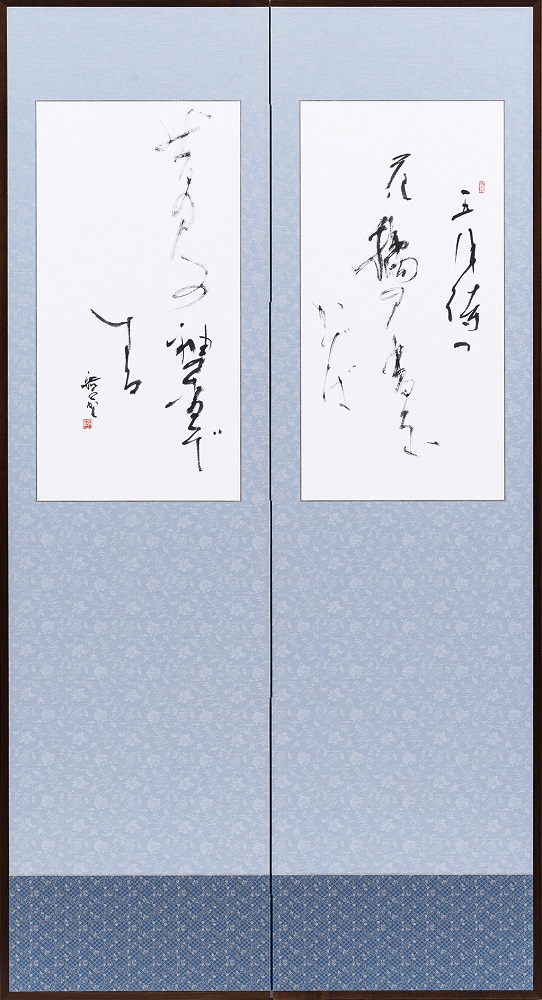 五月待つ
花橘の香を
かげば
昔の人の
袖の香ぞ
する